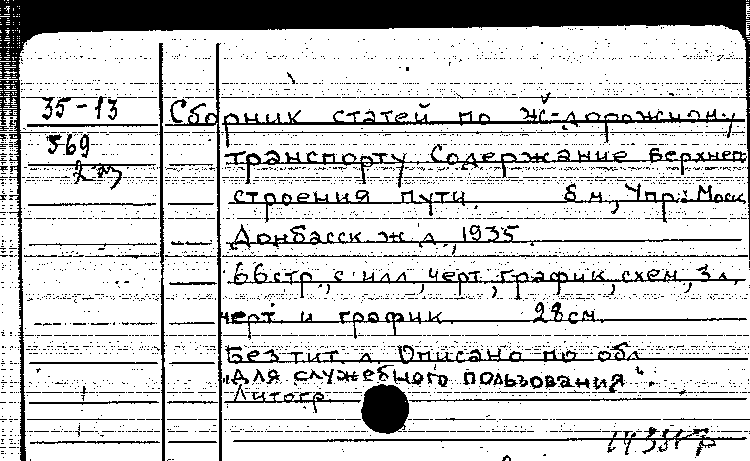 35-13 Сборник статей по ж-дорожному
569 транспорту. Содержание верхнег
строения пути. б м., Упр. Моск
Донбасск. ж. д., 1935.
66 стр., с илл., черт., график., схем., 3 л.
черт. и график. 28 см.
Без тит. л. Описано по обл.
"Для служебного пользования".
Литогр.